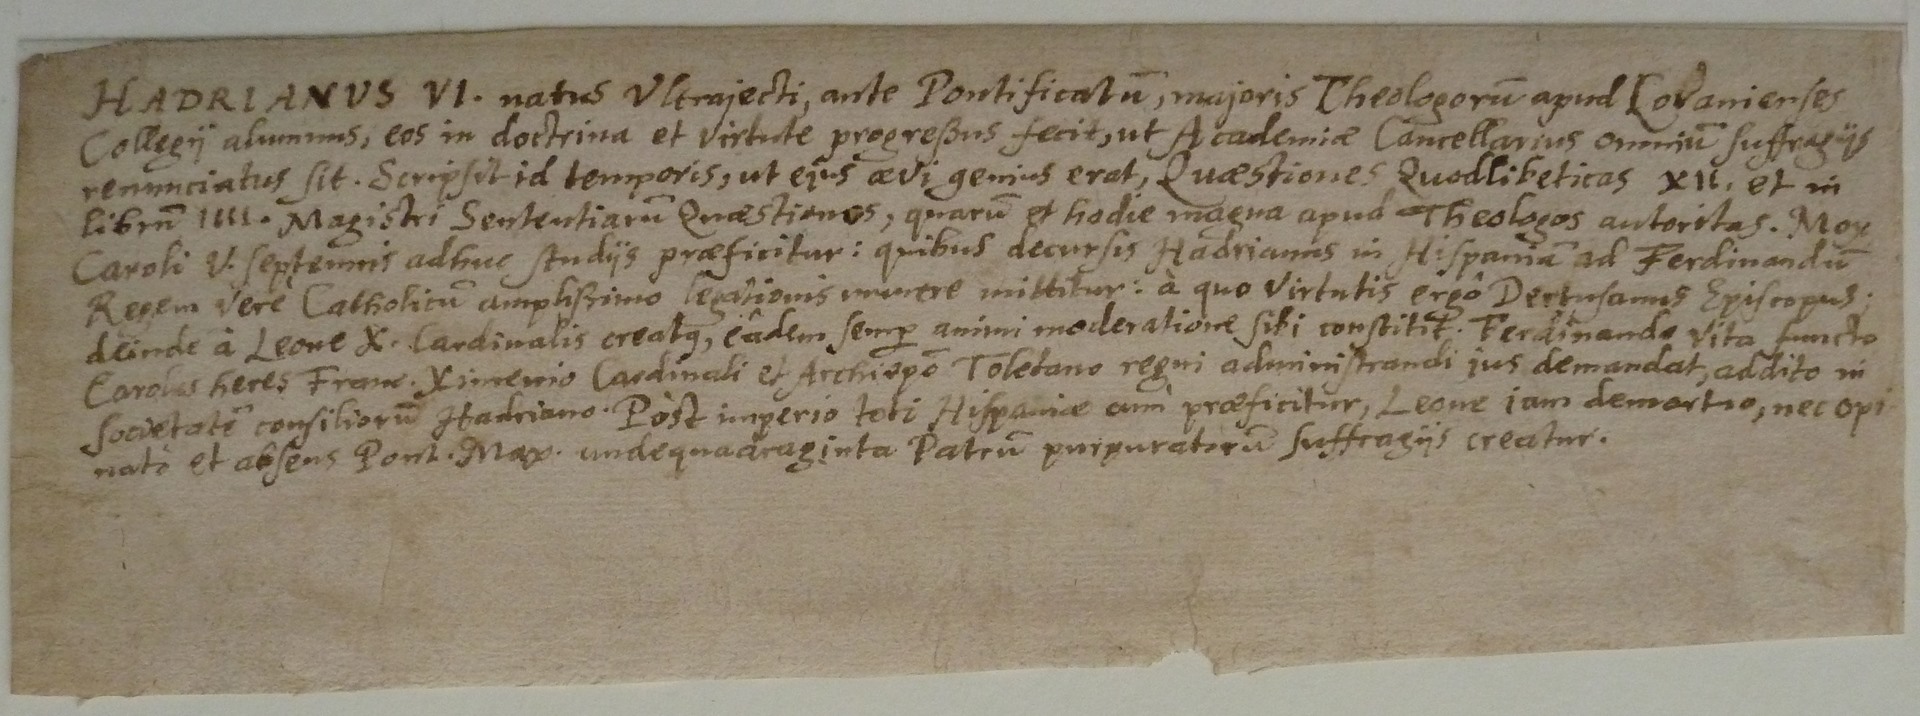 HADRIANUS VI. natus Vltrajecti, ante Pontificatū, majoris Theologorū apud Lovanienses
Collegij alumnus, eos in doctrina et virtute progreßus fecit, ut Academiæ Cancellarius omniū suffragijs
renunciatus sit. Scripsit id temporis, ut ejus ævi genius erat, Quæstiones Quodlibeticas XII. et in
librū IIII. Magistri Sententiarū Quæstiones, quarū et hodie magna apud Theologos autoritas. Mox
Caroli V. septennis adhuc studijs præficitur: quibus decursis Hadrianus in Hispaniā ad Ferdinandū
Regem vere Catholicū amplißimo legationis munere mittitur: à quo virtutis ergô Dertusanus Episcopus;
deinde à Leone X. Cardinalis creatq, eâdem semp animi moderatione sibi constitit. Ferdinando vita functo
Carolus heres Franc. Ximenio Cardinali et Archiepō Toletano regni administrandi jus demandat, addito in
societatē consiliorū Hadriano. Pòst imperio toti Hispaniæ cum præficitur, Leone iam demortuo, nec opi-
natò et absens Pont. Max. undequadraginta Patrū purpuratorū suffragijs creatur.